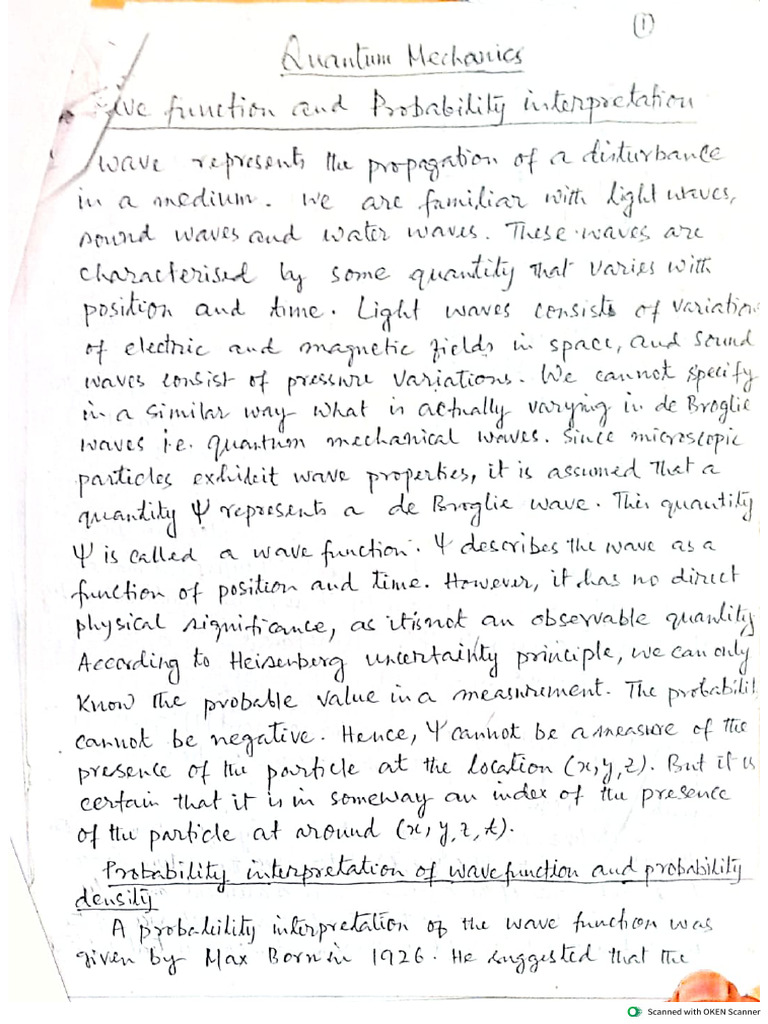 (1)
Quantum Mechanics
ve function and Probability interpretation
wave represents the propagation of a disturbance
in a medium. We are familiar with light waves,
sound waves and water waves. These waves are
characterised by some quantity that varies with
position and time. Light waves consists of variation
of electric and magnetic fields in space, and sound
waves consist of pressure variations. We cannot specify
in a similar way what is actually varying in de Broglie
waves i.e. quantum mechanical waves. Since microscopic
particles exhibit wave properties, it is assumed that a
quantity Ψ represents a de Broglie wave. This quantity
Ψ is called a wave function. Ψ describes the wave as a
function of position and time. However, it has no direct
physical significance, as it is not an observable quantity
According to Heisenberg uncertainty principle, we can only
know the probable value in a measurement. The probabilit
cannot be negative. Hence, Ψ cannot be a measure of the
presence of the particle at the location (x, y, z). But it is
certain that it is in someway an index of the presence
of the particle at around (x, y, z, t).
Probability interpretation of wave function and probability
density
A probability interpretation of the wave function was
given by Max Born in 1926. He suggested that the
Scanned with OKEN Scanner